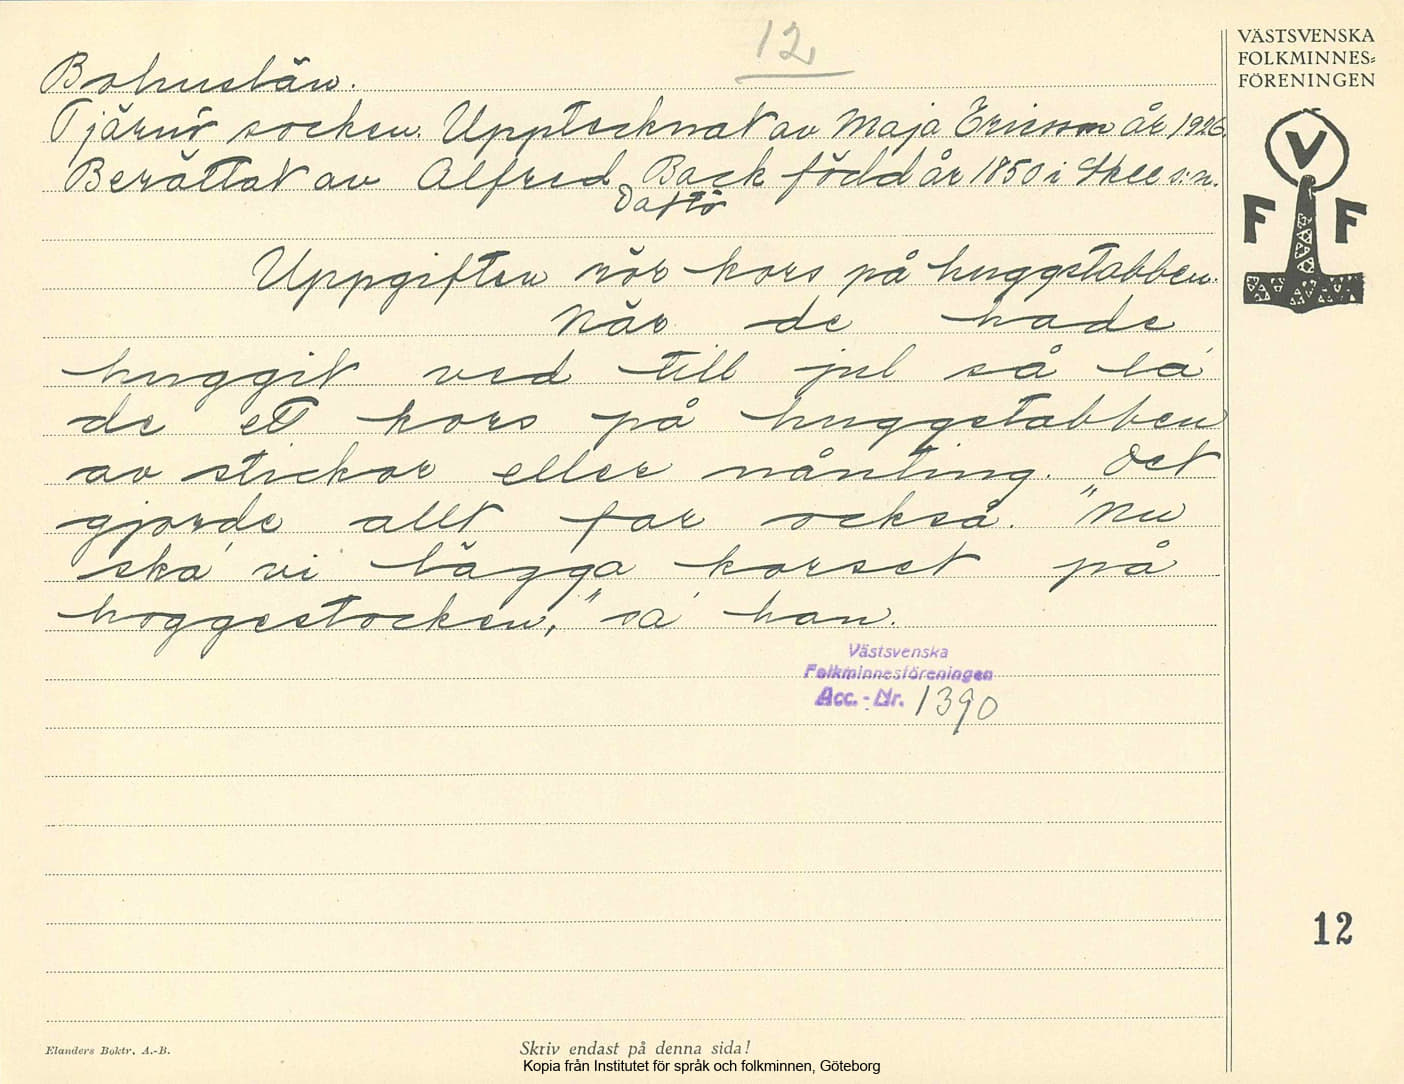 12
VÄSTSVENSKA
FOLKMINNES=
FÖRENINGEN
Bohuslän.
Tjärnö socken. Upptecknat av Maja Ericson år 1926.
Berättat av Alfred Back född år 1850 i Skee s:n.
Daftö
V
F F
Uppgiften rör kors på huggstabben.
När de hade
huggit ved till jul så la'
de ett kors på huggstabben
av stickor eller nånting. Det
gjorde allt far också. "Nu
ska' vi lägga korset på
hoggestocken," sa' han.
Västsvenska
Folkminnesföreningen
Acc. - Nr. 1390
12
Elanders Boktr. A.-B.
Skriv endast på denna sida!
Kopia från Institutet för språk och folkminnen, Göteborg